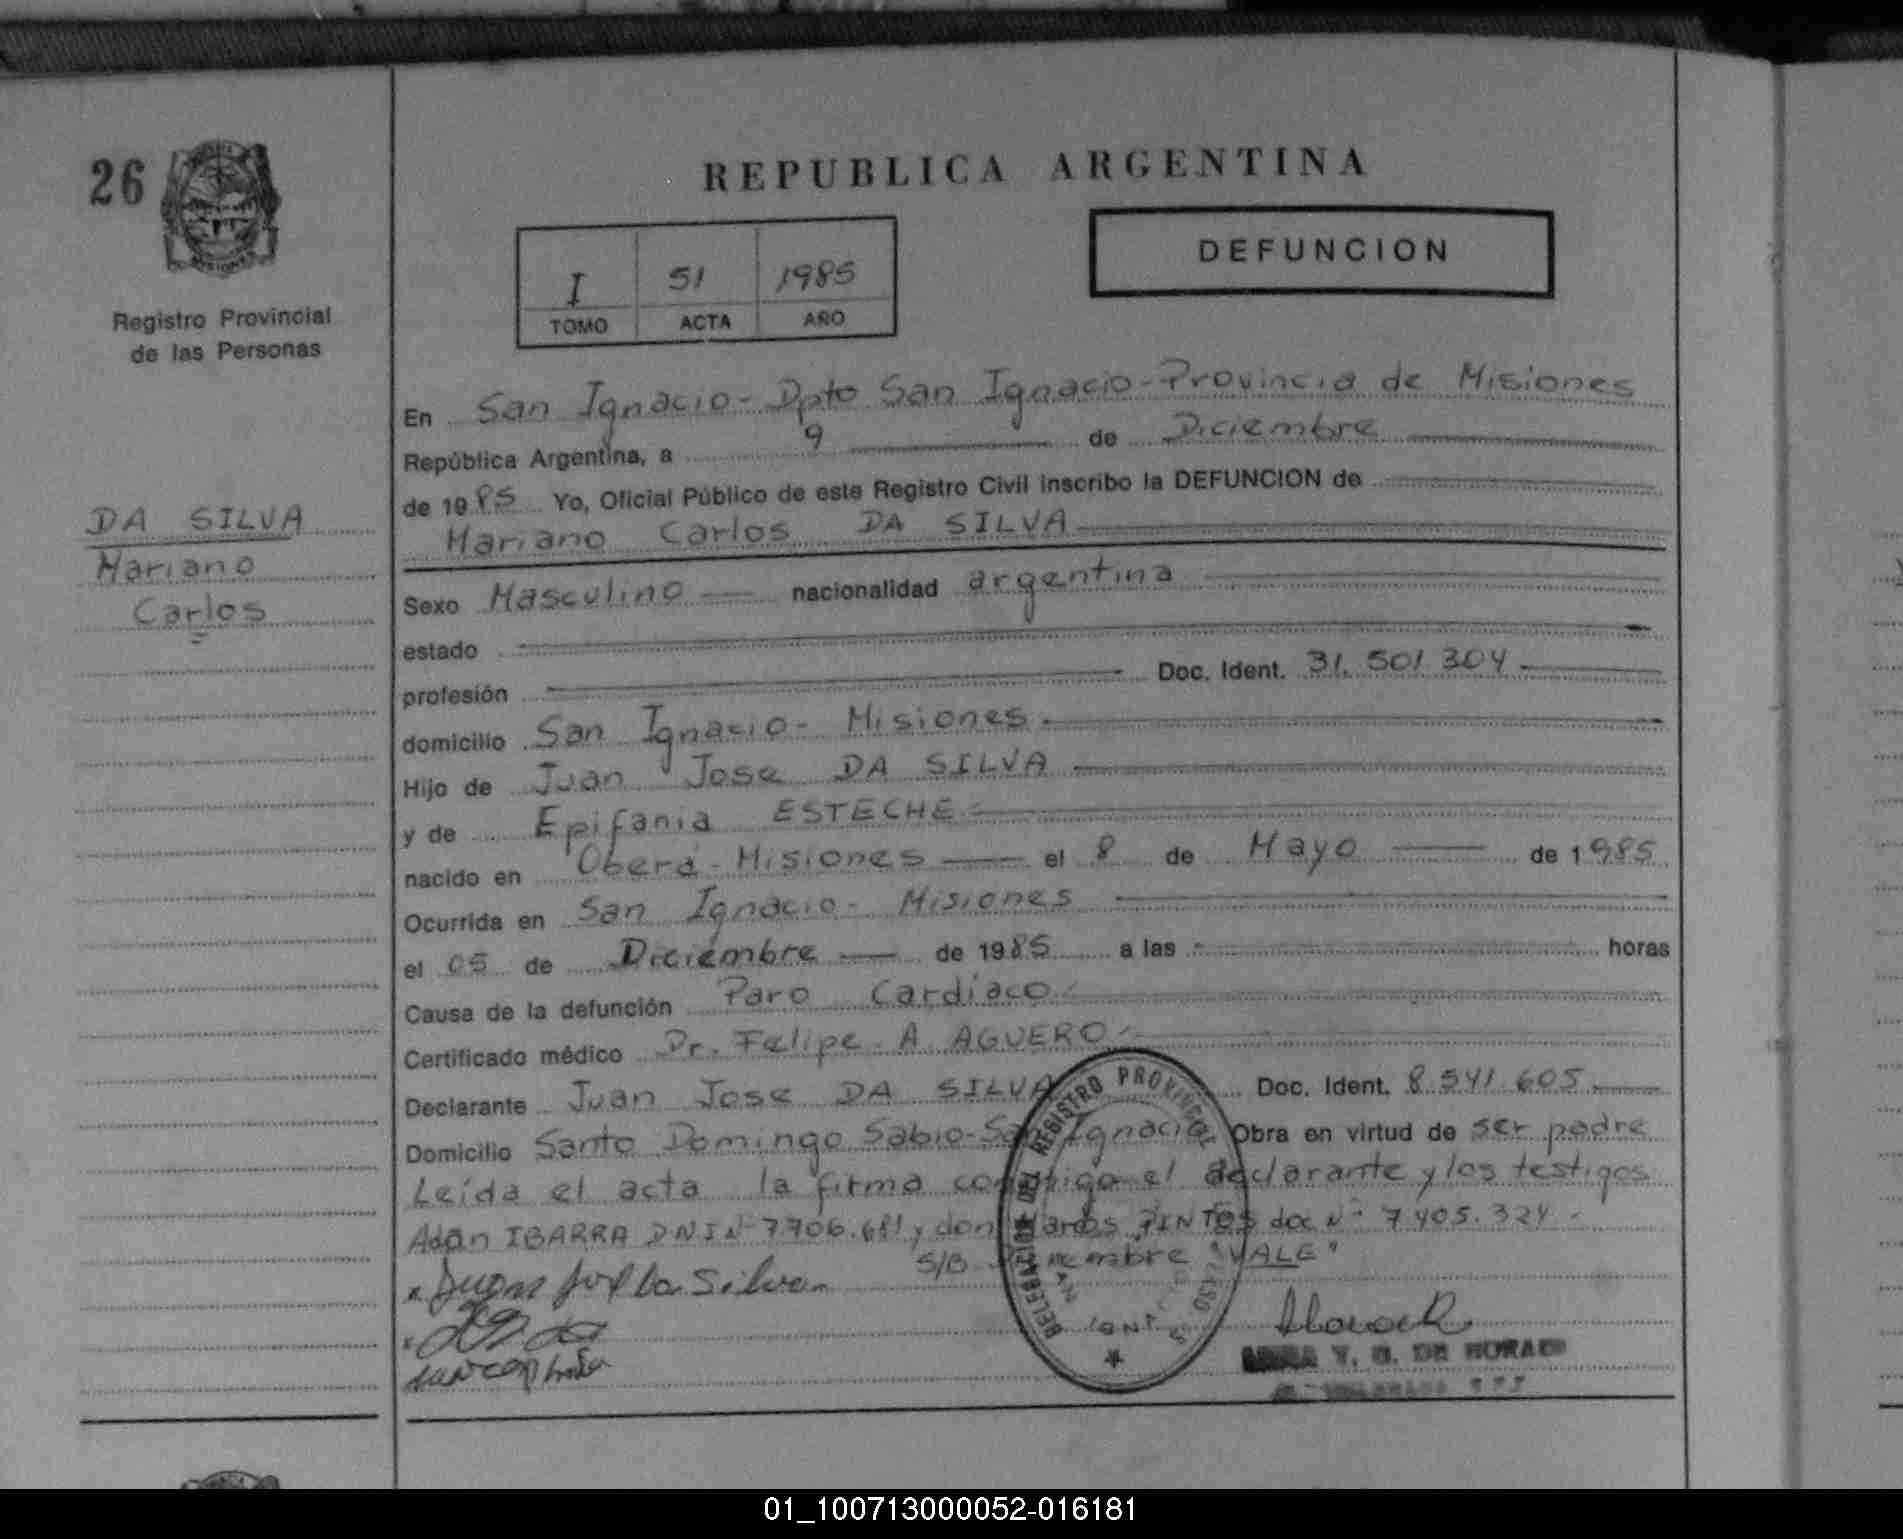 26
MISIONES
Registro Provincial
de las Personas
DA SILVA
Mariano
Carlos
REPUBLICA ARGENTINA
I 51 1985
TOMO ACTA AÑO
DEFUNCION
En San Ignacio - Dpto San Ignacio - Provincia de Misiones
República Argentina, a 9 de Diciembre
de 1985 Yo, Oficial Público de este Registro Civil inscribo la DEFUNCION de
Mariano Carlos DA SILVA
Sexo Masculino nacionalidad argentina
estado
profesión Doc. Ident. 31.501.304
domicilio San Ignacio - Misiones
Hijo de Juan Jose DA SILVA
y de Epifania ESTECHE
nacido en Oberá - Misiones el 8 de Mayo de 1985
Ocurrida en San Ignacio - Misiones
el 05 de Diciembre de 1985 a las horas
Causa de la defunción Paro Cardíaco
Certificado médico Dr. Felipe A AGUERO
Declarante Juan Jose DA SILVA Doc. Ident. 8.541.605
Domicilio Santo Domingo Sabio - San Ignacio Obra en virtud de ser padre
Leída el acta la firma conmigo el declarante y los testigos
Adan IBARRA DNI Nº 7.706.681 y don PINTOS doc Nº 7.405.324 -
S/B "VALE"
DELEGACION DEL REGISTRO PROVINCIAL
DE HORA
01_100713000052-016181